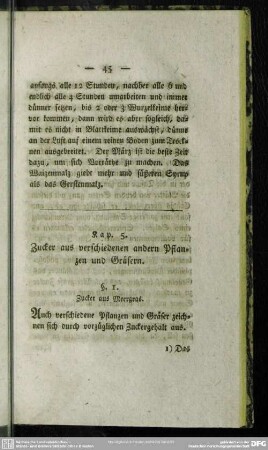 — 45 —
anfangs alle 12 Stunden, nachher alle 6 und
endlich alle 4 Stunden umarbeiten und immer
dünner setzen, bis 2 oder 3 Wurzelkeime her-
vor kommen; dann wird es aber sogleich, da-
mit es nicht in Blattkeime auswächst, dünne
an der Luft auf einem reinen Boden zum Trock-
nen ausgebreitet. Der März ist die beste Zeit
dazu, um sich Vorräthe zu machen. Das
Waizenmalz giebt mehr und süßeren Syrup
als das Gerstenmalz.
Kap. 5.
Zucker aus verschiedenen andern Pflan-
zen und Gräsern.
§. 1.
Zucker aus Meergras.
Auch verschiedene Pflanzen und Gräser zeich-
nen sich durch vorzüglichen Zuckergehalt aus.
1) Das
DFG